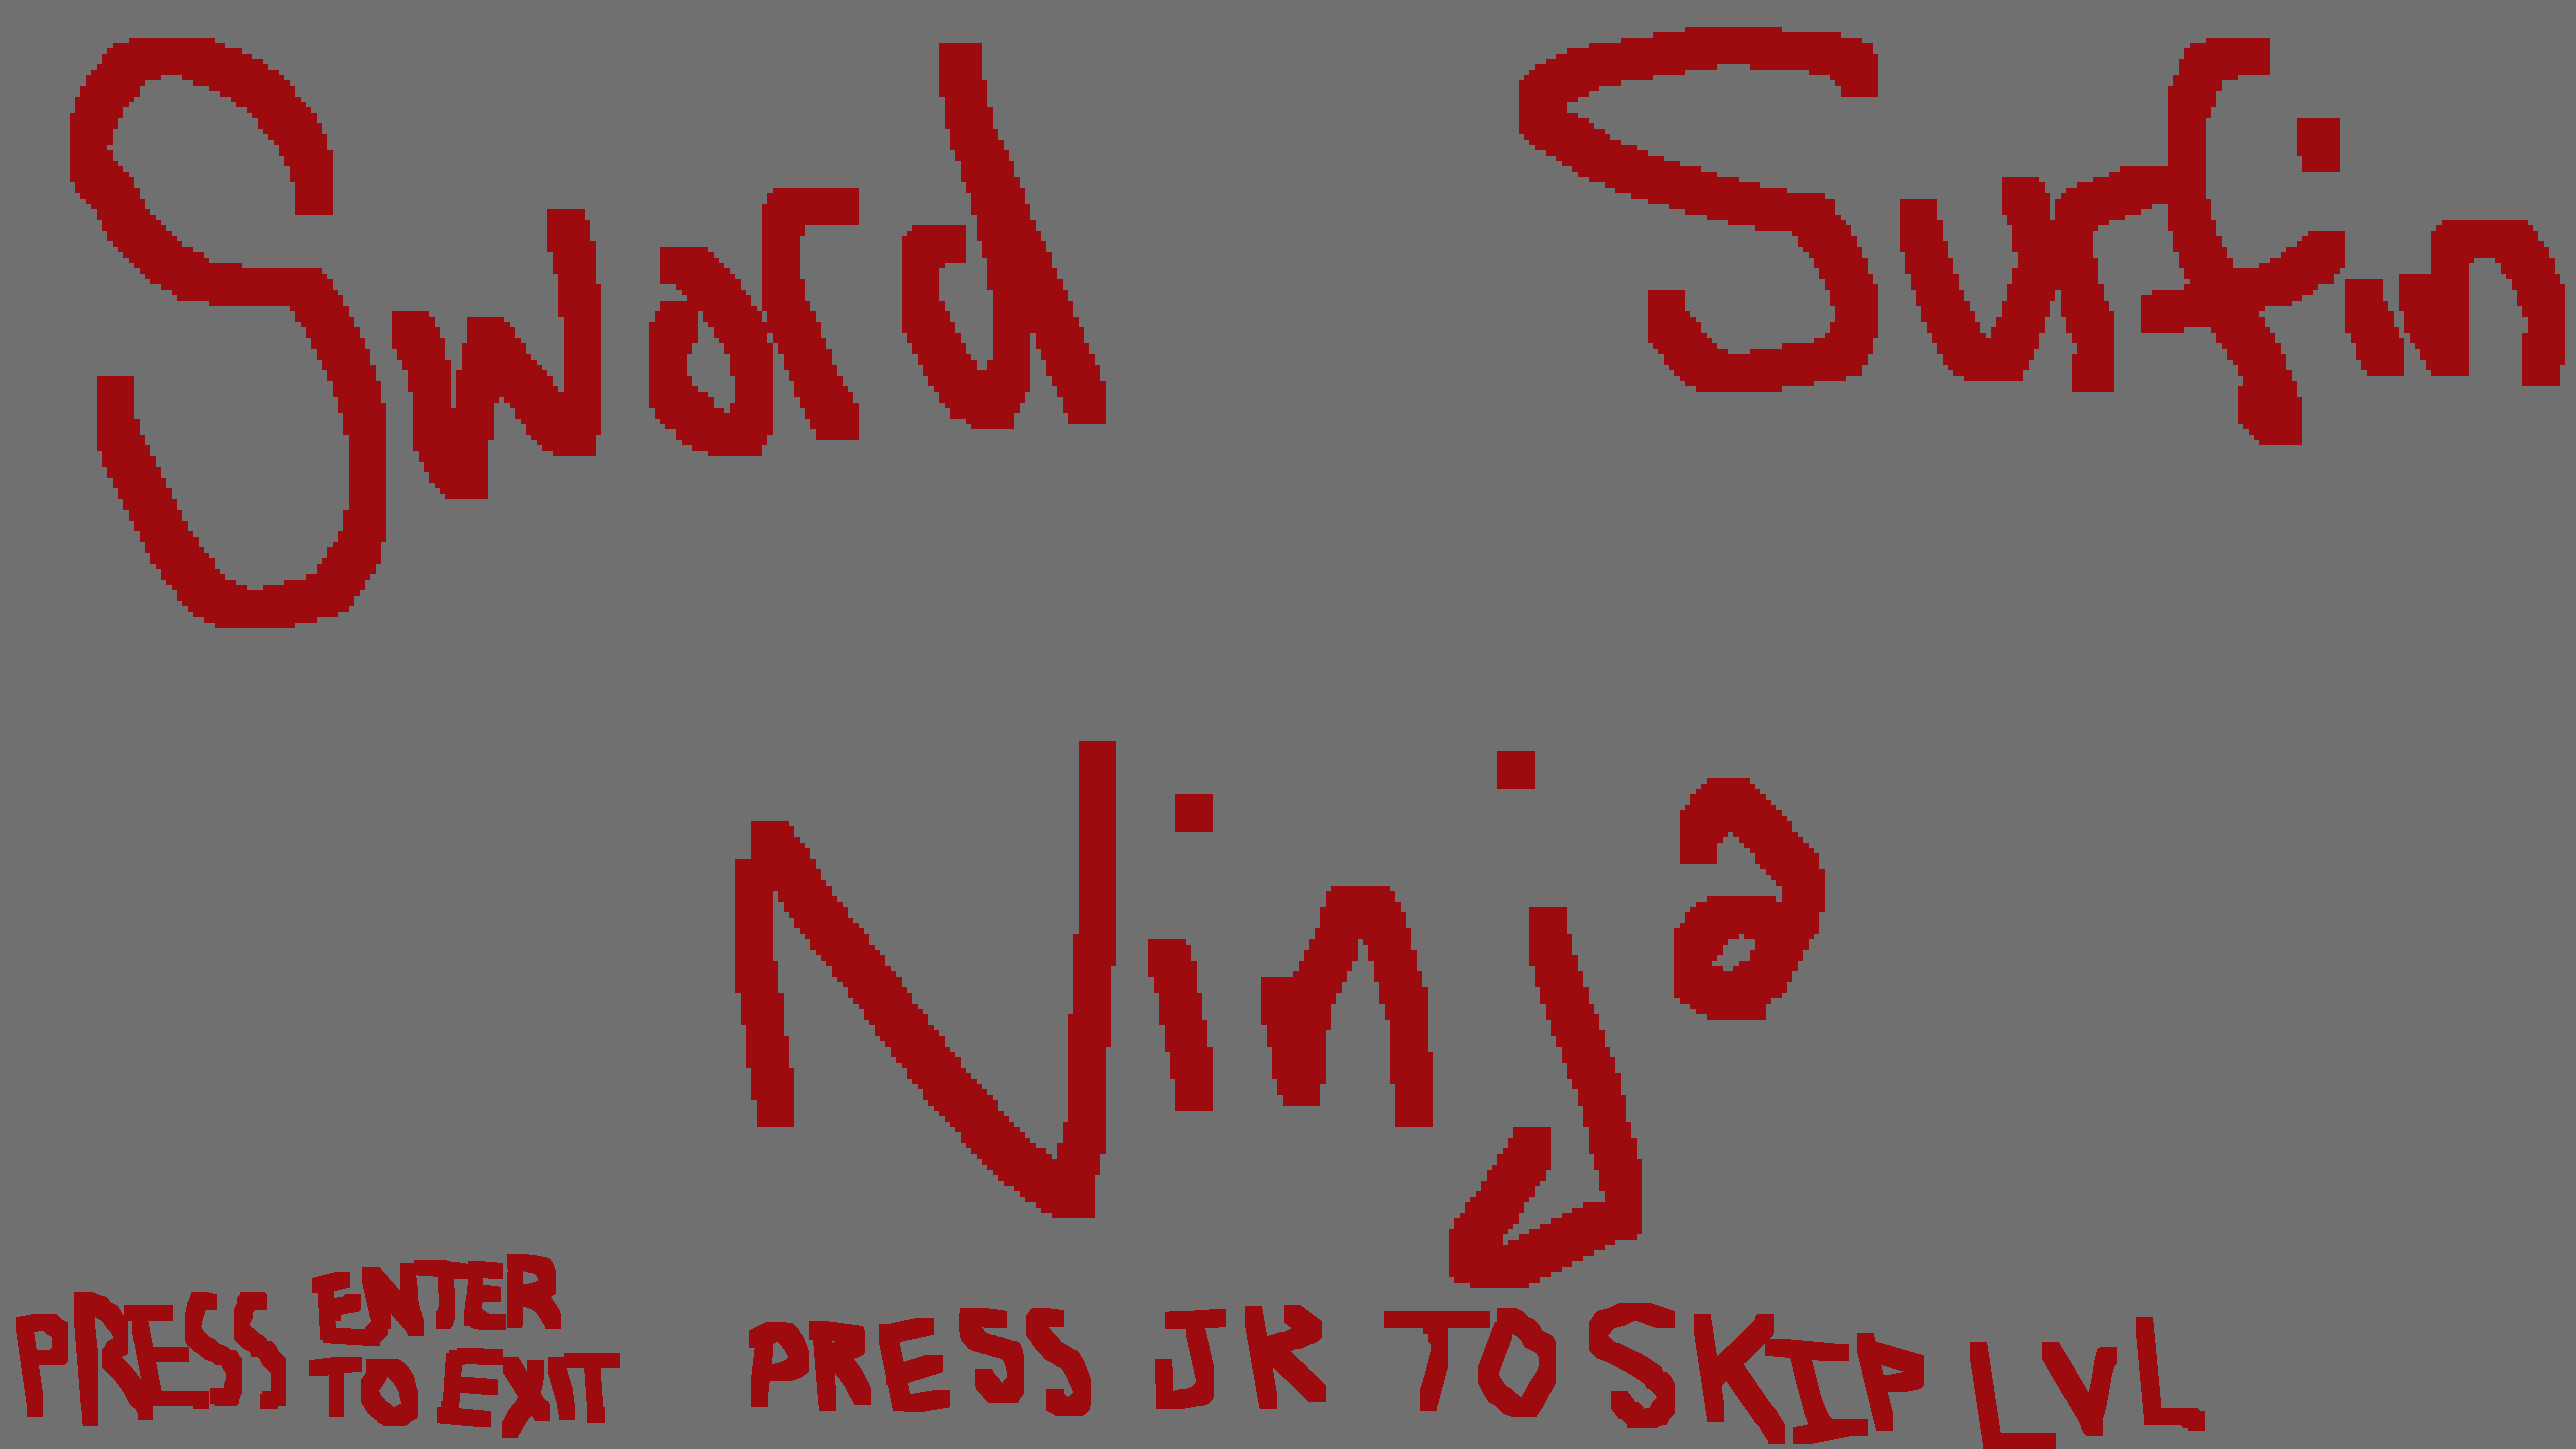 Sword Surfin
Ninja
PRESS ENTER
TO EXIT
PRESS JR TO SKIP LVL